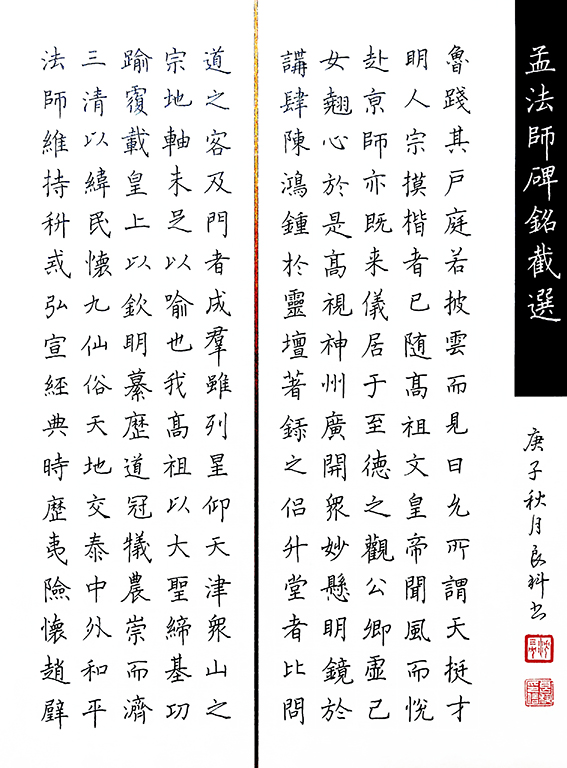 孟法師碑銘截選
魯踐其戸庭若披雲而見日允所謂天挺才
明人宗摸楷者已随髙祖文皇帝聞風而悅
赴京師亦既来儀居于至德之觀公卿虛己
女翹心於是髙視神州廣開衆妙懸明鏡於
講肆陳鴻鍾於靈壇著録之侣升堂者比問
道之客及門者成羣雖列星仰天津衆山之
宗地軸未足以喻也我髙祖以大聖締基功
踰覆載皇上以欽明纂歷道冠犠農崇而濟
三清以緯民懷九仙俗天地交泰中外和平
法師維持科戒弘宣經典時歷夷險懷趙璧
庚子秋月良科书